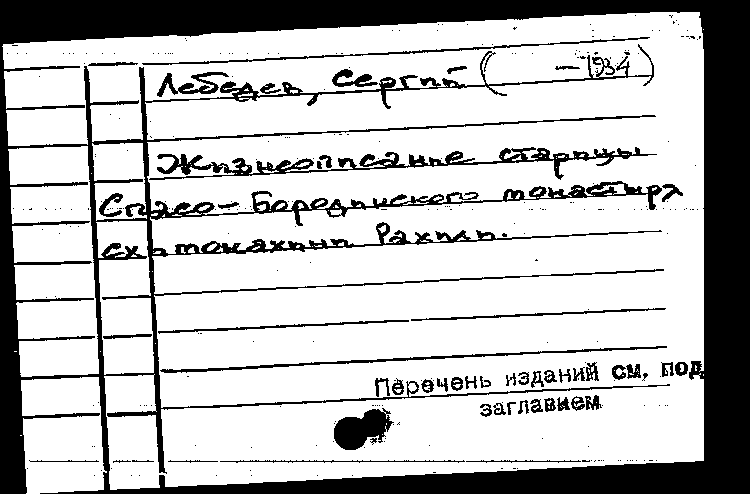 Лебедев, Сергий ( –1934)
Жизнеописание старицы
Спасо-Бородинского монастыря
схимонахини Рахили.
Перечень изданий см. под
заглавием